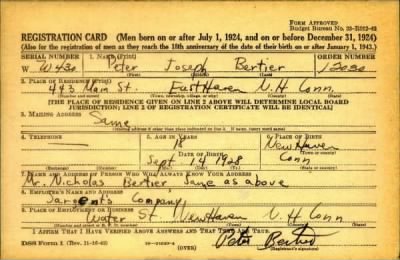 FORM APPROVED
Budget Bureau No. 33-R012-42
REGISTRATION CARD (Men born on or after July 1, 1924, and on or before December 31, 1924)
(Also for the registration of men as they reach the 18th anniversary of the date of their birth on or after January 1, 1943.)
SERIAL NUMBER 1. NAME (Print) ORDER NUMBER
W W430 Peter Joseph Bertier 12030
2. PLACE OF RESIDENCE (Print)
443 Main St. East Haven N. H Conn.
(Number and street) (Town, township, village, or city) (County) (State)
[THE PLACE OF RESIDENCE GIVEN ON LINE 2 ABOVE WILL DETERMINE LOCAL BOARD
JURISDICTION; LINE 2 OF REGISTRATION CERTIFICATE WILL BE IDENTICAL]
3. MAILING ADDRESS
Same
[Mailing address if other than place indicated on line 2. If same, insert word same]
4. TELEPHONE 5. AGE IN YEARS 6. PLACE OF BIRTH
18 New Haven
DATE OF BIRTH
Sept 14 1928 Conn
7. NAME AND ADDRESS OF PERSON WHO WILL ALWAYS KNOW YOUR ADDRESS
Mr. Nicholas Bertier Same as above
8. EMPLOYER'S NAME AND ADDRESS
Sargents Company
9. PLACE OF EMPLOYMENT OR BUSINESS
Water St. New Haven N. H Conn
(Number and street or R. F. D. number) (Town) (County) (State)
I AFFIRM THAT I HAVE VERIFIED ABOVE ANSWERS AND THAT THEY ARE TRUE.
DSS Form 1 (Rev. 11-16-42) (OVER) Peter Bertier